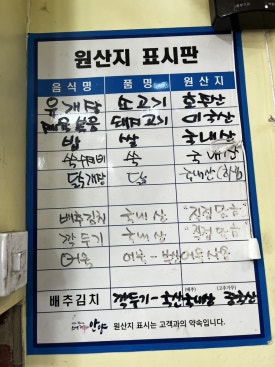 원산지 표시판
음식명 품명 원산지
육개장 소고기 호주산
제육볶음 돼지고기 미국산
밥 쌀 국내산
쑥 국내산
닭개장 닭 국내산
배추김치 국내산 "직접담금"
깍두기 국내산 "직접담금"
어묵
배추김치 깍두기 - 국산 (배추) 국내산 (고추가루) 중국산
안양 원산지 표시는 고객과의 약속입니다.